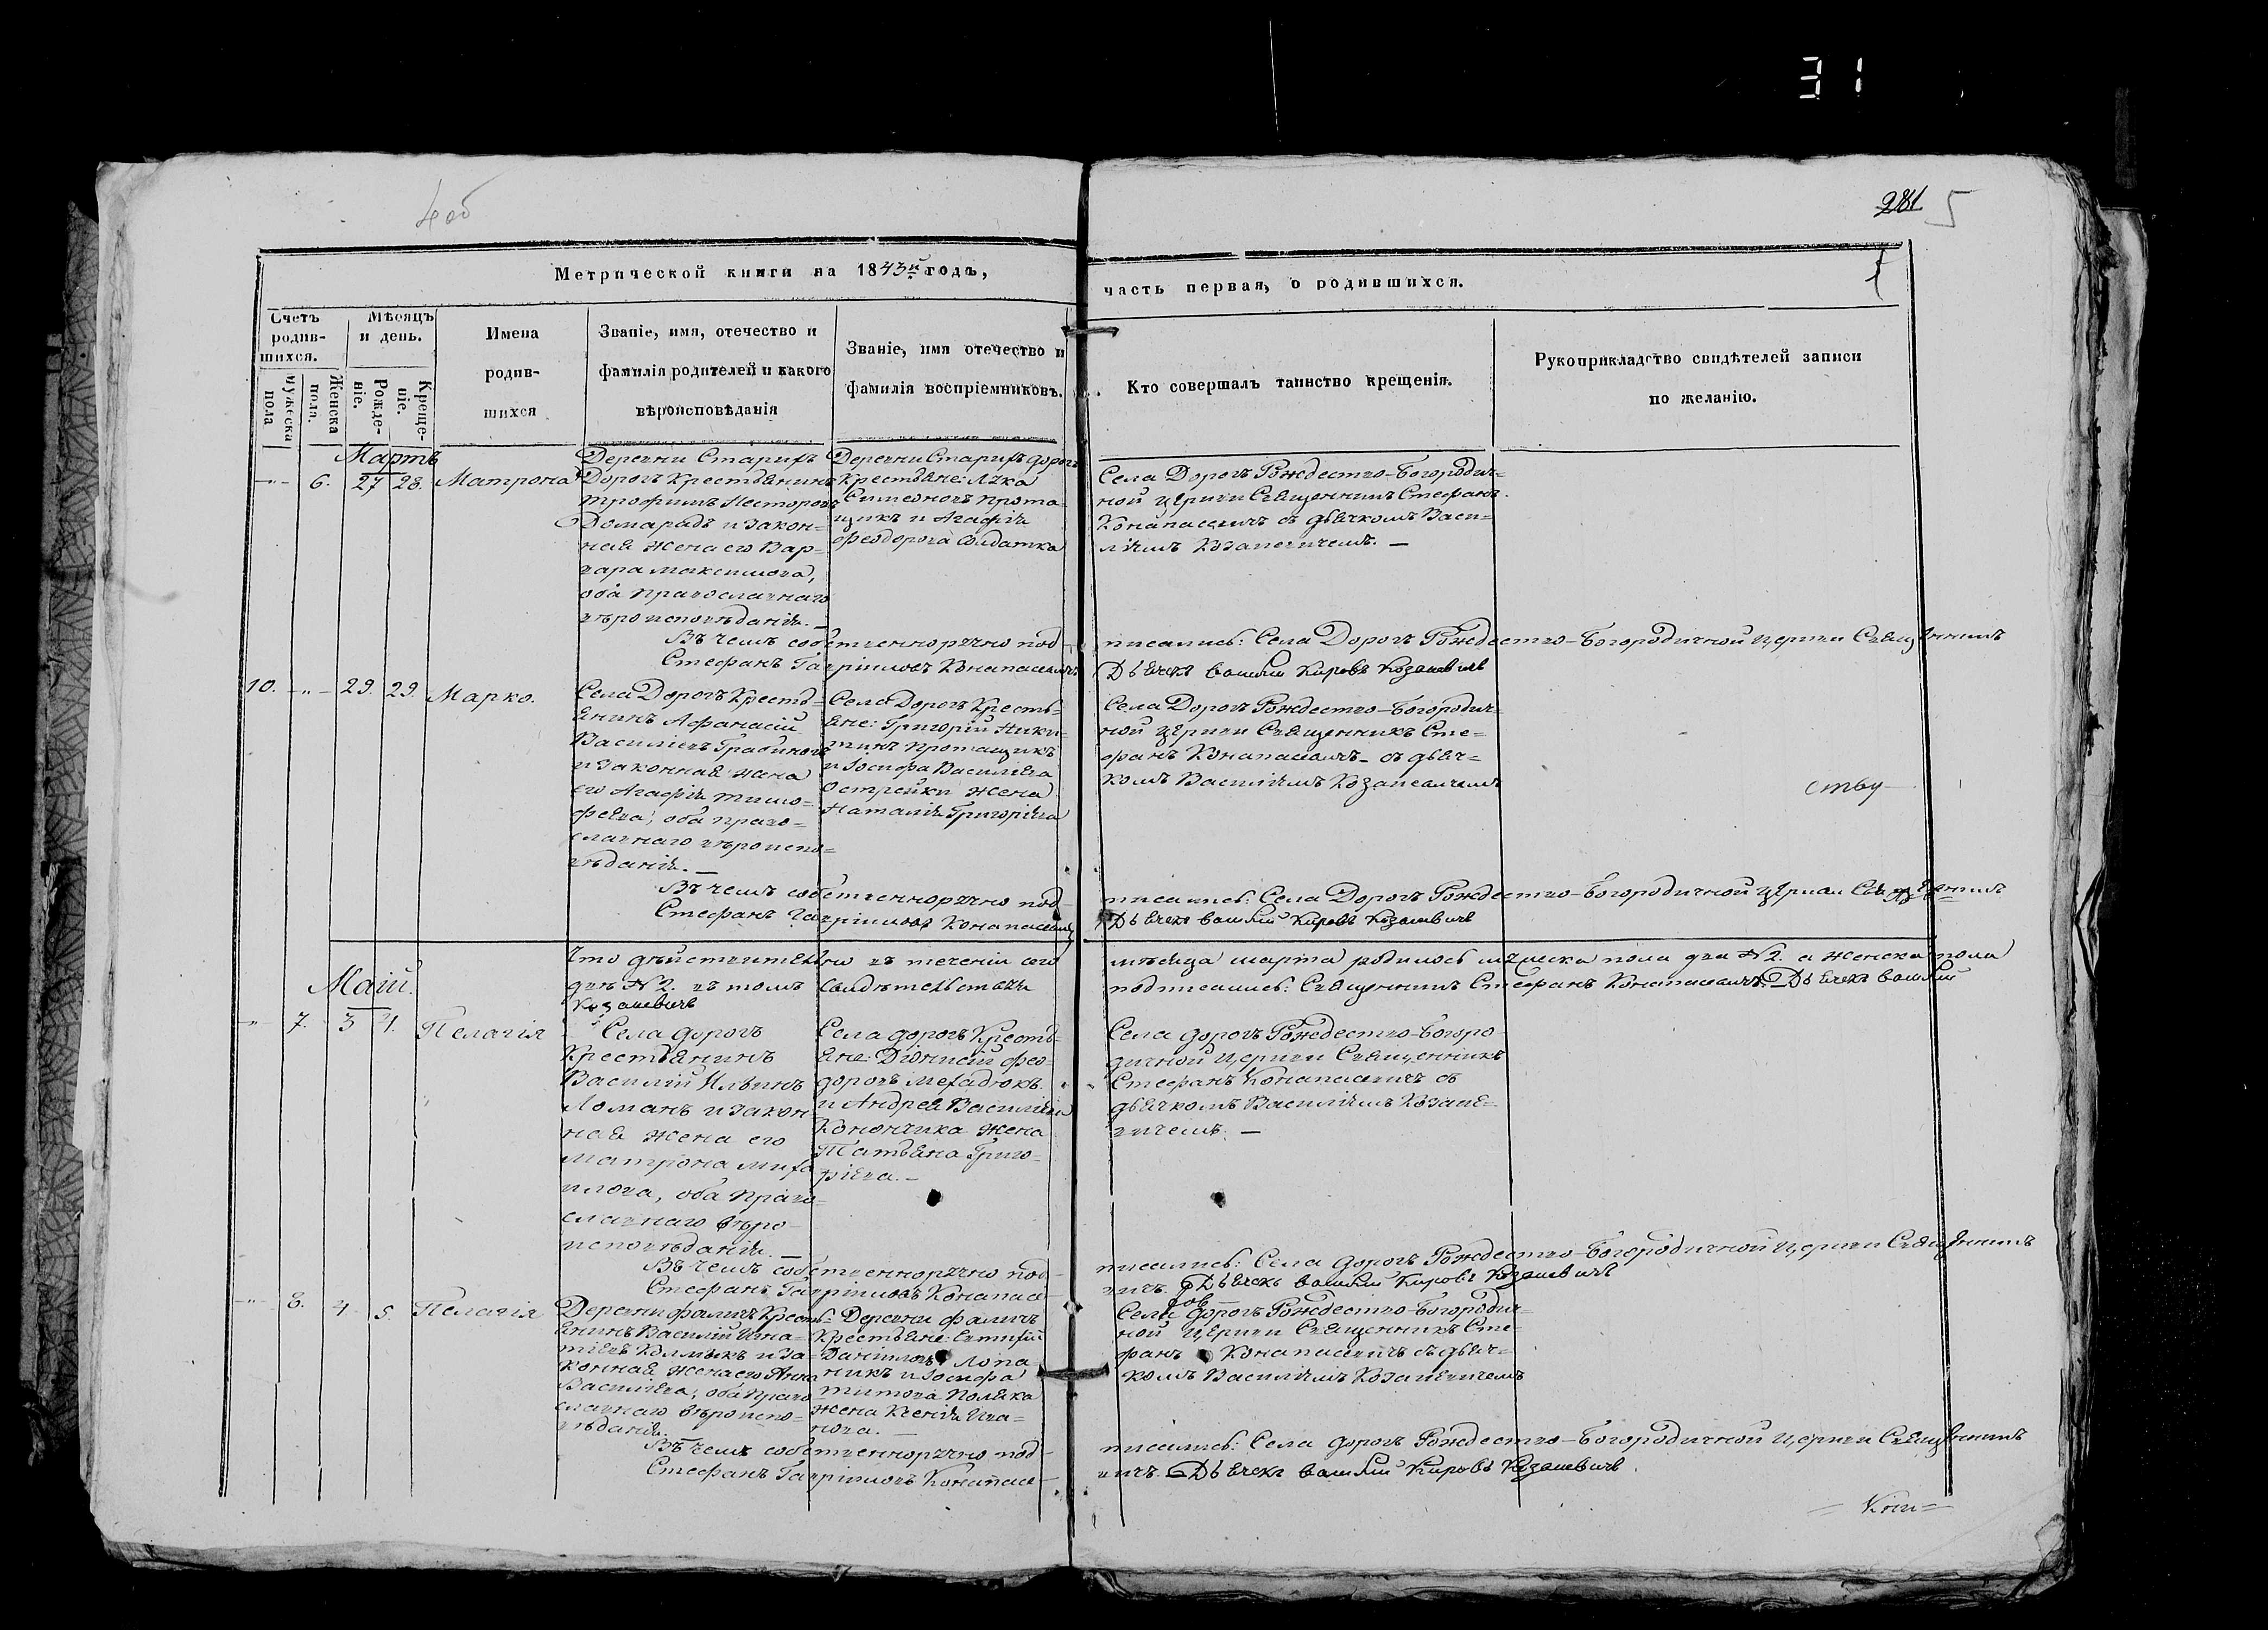 31
4об
281 5
Метрической книги на 1843й годъ,
часть первая, о родившихся.
Счетъ родив-шихся.
Мѣсяцъ и день.
Имена родив-шихся
Званіе, имя, отечество и фамилія родителей и какого вѣроисповѣданія
Званіе, имя отечество и фамилія воспріемниковъ.
Кто совершалъ таинство крещенія.
Рукоприкладство свидѣтелей записи по желанію.
Мужеска пола
Женска пола.
Рожде-ніе.
Креще-ніе.
Мартъ
-"- 6. 27 28. Матрона
Деревни Старихъ
Дорогъ Крестьянинъ
Трофимъ Несторовъ
Домарадъ и закон=
ная жена его Вар=
вара Максимова,
оба православнаго
вѣроисповѣданія. _
Деревни Старихъ дорогъ
Крестьяне: Лука
Симеоновъ Прота-
щикъ и Агафія
Феодорова Солдатка
Села Дорогъ Рождество-Богородич=
ной церкви Священникъ Стефанъ
Конапасевичъ съ дьячкомъ Васи=
ліемъ Козакевичемъ. —
Въ чемъ собственноручно под-
писались: Села Дорогъ Рождество-Богородичной церкви Священникъ
Стефанъ Гавріиловъ Конапасевичъ
Дьячекъ Василій Кировъ Козакевичъ
10. -"- 29. 29. Марко.
Села Дорогъ Кресть=
янинъ Афанасій
Василіевъ
и законная жена
его Агафія Тимо=
феева, оба право=
славнаго вѣроиспо=
вѣданія. —
Села Дорогъ Кресть=
яне: Григорій Ники-
тинъ Протащикъ
и Іосифа Василіева
Острейки жена
Наталія Григоріева
Села Дорогъ Рождество-Богородич=
ной церкви Священникъ Сте=
фанъ Конапасевичъ съ дьяч=
комъ Василіемъ Козакевичемъ
ству
Въ чемъ собственноручно под-
писались: Села Дорогъ Рождество-Богородичной церкви Священникъ
Стефанъ Гавріиловъ Конапасевичъ
Дьячекъ Василій Кировъ Козакевичъ
Что дѣйствительно въ теченіи сего
мѣсяца марта родилось мужеска пола два №2. а женска пола
двѣ №2. въ томъ свидѣтельствуя
подписались: Священникъ Стефанъ Конапасевичъ. Дьячекъ Василій
Козакевичъ
Маій.
-"- 7. 3 4. Пелагія
Села дорогъ
Крестьянинъ
Василій Ильинъ
Ломанъ и закон
ная жена его
Матрона Миха
илова, оба право-
славнаго вѣро-
исповѣданія. —
Села дорогъ Кресть-
яне: Діонисій Фео-
доровъ Мехадюкъ
и Андрея Василіева
Конончика жена
Татьяна Григо-
ріева. —
Села дорогъ Рождество-Богоро-
дичной церкви Священникъ
Стефанъ Конапасевичъ съ
дьячкомъ Василіемъ Козаке-
вичемъ. —
Въ чемъ собственноручно под-
писались: Села дорогъ Рождество-Богородичной церкви Священникъ
Стефанъ Гавріиловъ Конапасе-
вичъ. Дьячекъ Василій Кировъ Козакевичъ
-"- 8. 4. 5. Пелагія
Деревни Фаличъ Кресть-
янинъ Василій Игна-
тіевъ Колмыкъ и за-
конная жена его Анна
Василіева, оба право
славнаго вѣроиспо=
вѣданія.
Деревни Фаличъ
Крестьяне: Евтихій
Даніиловъ Лопа
никъ и Іосифа
Титова Поляка
жена Ксенія Ива=
нова. —
Села дорогъ Рождество-Богородич=
ной церкви Священникъ Сте=
фанъ Конапасевичъ съ дьяч=
комъ Василіемъ Козакевичемъ
Въ чемъ собственноручно под-
писались: Села дорогъ Рождество-Богородичной церкви Священникъ
Стефанъ Гавріиловъ Конапасе-
вичъ. Дьячекъ Василій Кировъ Козакевичъ.